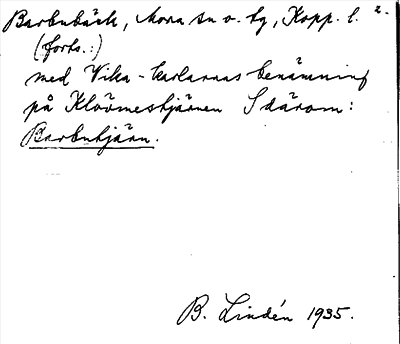 Barbubäck, Mora sn o. tg, Kopp. l. 2.
(forts.:)
med Vika-karlarnas benämning
på Klovmestjärnen S därom:
Barbutjärn.
B. Lindén 1935.